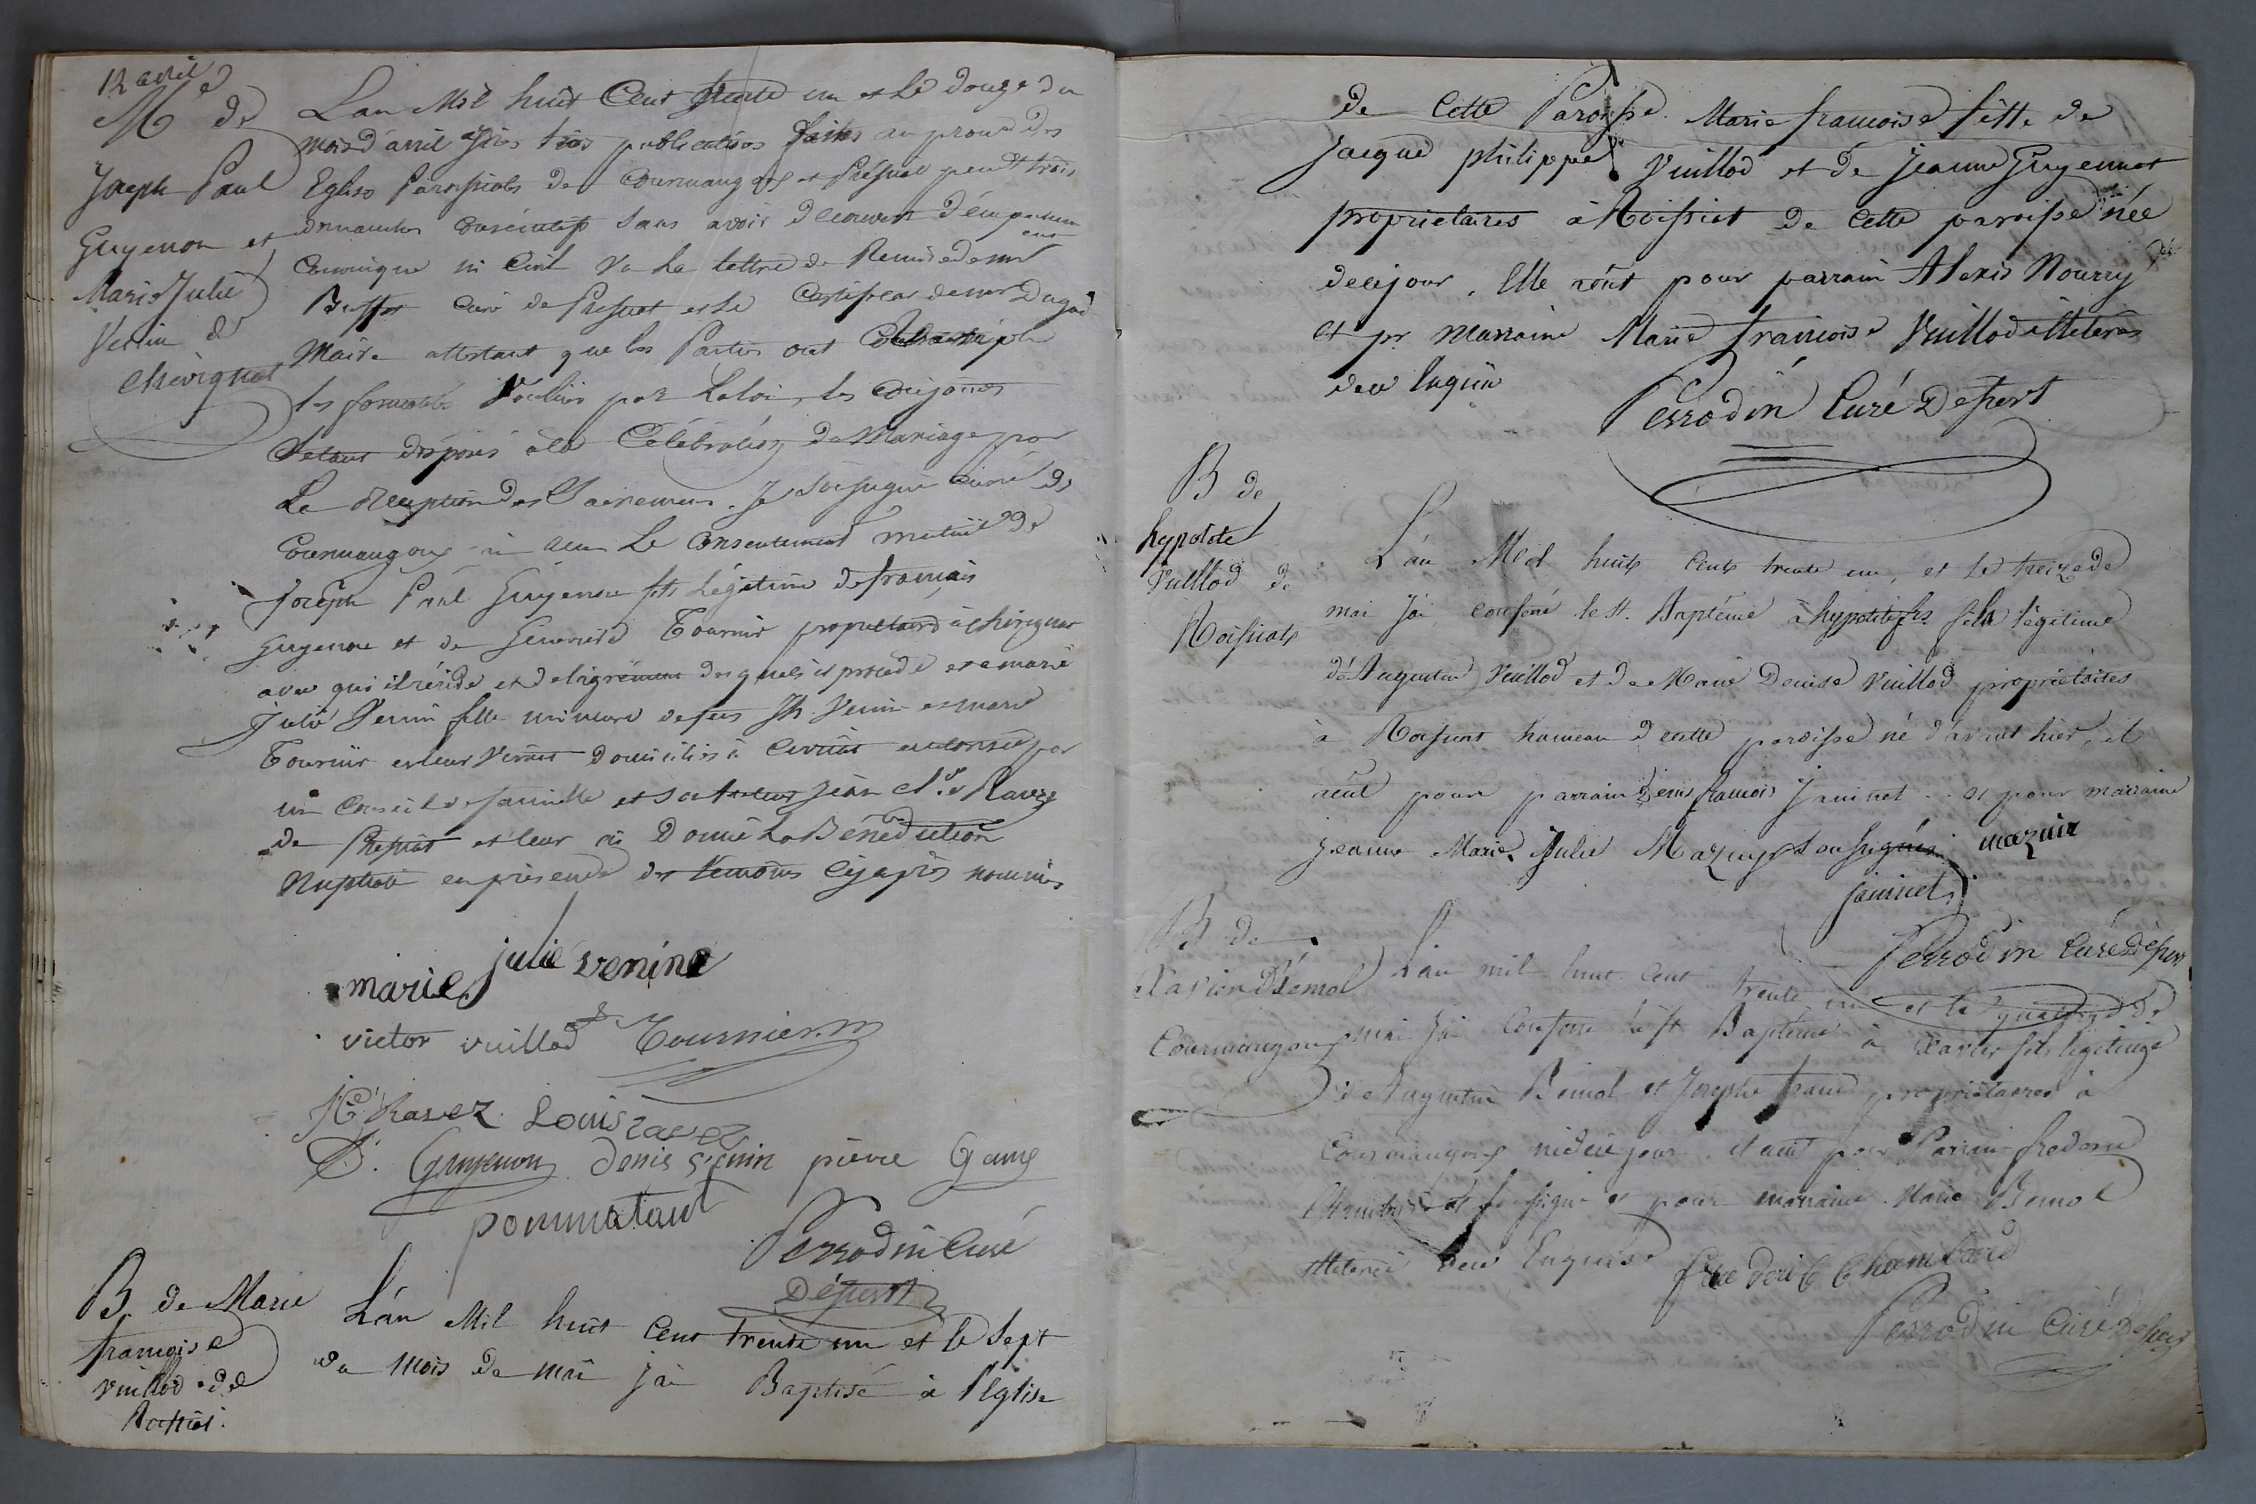 12 avril
Mge de
Joseph Paul
Guyenon et
Marie Julie
Venin de
Chevignat
L'an Mil huit Cent trente un et le douze du
mois d'avril après trois publications faites au prone des
Eglises Paroissiales de Courmangoux et Pressiat pendt trois
dimanches consécutifs sans avoir decouvert d'empechem
ent
canonique ni Civil Vu la lettre de Remise de mr
Buffet curé de Pressiat et le Certificat de mr
Maire attestant que les Parties ont
les formalités Voulues par la loi, les conjoints
S'etant disposés à la Célébration du Mariage par
La réception des Sacremens. Je Soussigné Curé de
Courmangoux ai recu Le Consentement mutuel de
Joseph Paul Guyenon fils Légitime de françois
Guyenon et de Tournier proprietaires à chevignat
avec qui il réside et de l'agrément desquels il procede et de marie
Julie Venin fille mineure de feu Jh. Venin et marie
Tournier en leur vivant domiciliés à Civriat autorisée par
un Conseil de famille et son tuteur Jean Cl.de Ravez
de Pressiat et leur ai Donné La Bénédiction
Nuptiale en présence des temoins Cy après nommés
marie julie venine
victor vuillod Tournier
Ravez Louis ravez
Guyenon Denis Siguin pierre Game
pommatant
Perrodin Curé
Déssert
B. de Marie
françoise
Vuillod de
Roissiat
L'an Mil huit Cent trente un et le Sept
du mois de mai j'ai Baptisé à l'Eglise
de Cette Paroisse. Marie françoise fille de
Jacque philippe Vuillod et de Jeanne Guyennot
proprietaires à Roissiat de Cette paroisse née
de ce jour. Elle a eut pour parrain Alexis Nourry
et pr marraine Marie françoise Vuillod illeterés
de ce Enquis
Perrodin Curé Dessert
B de
hypolite
Vuillod de
Roissiat
L'an Mil huit Cent trente un, et le treize de
mai J'ai conferé le St. Baptême à hypolite fils légitime
d'Augustin Vuillod et de Marie Denise Vuillod propriétaires
à Roissiat hameau de cette paroisse né d'avant hier, il
a eut pour parrain denis françois Janinet et pour marraine
Jeanne Marie Julie Mazuyr Soussignés mazuir
janinet
Perrodin Curé Dessert
B de
Xavier Bémol
Courmangoux
L'an mil huit cent trente un et le quatorze de
mai J'ai Conferé le St Baptême à Xavier fils légitime
de Augustin Bémol et Josephe proprietaires à
Courmangoux né de ce jour. il a eut pour Parrain frederic
Chambard Soussigné et pour marraine Marie Bemol
illeterée de ce Enquise
frederic Chambard
Perrodin Curé Dessert